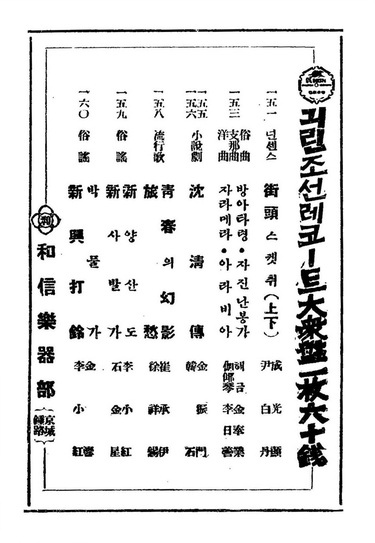 긔린조선레코―드大衆盤一枚六十錢
一五一 넌센스 街頭스켓취(上下) 成光顯 尹白丹
一五三 俗曲 支那曲 洋曲 방아타령・자진난봉가 자라메라・아라비아 해금 伽倻琴
一五五 一五六 小說劇 沈淸傳 石
一五八 流行歌 靑春의幻影 旅愁 崔承 徐祥錫
一五九 俗謠 신양산도 신사발가 李小紅 石金星
一六〇 俗謠 박물가 新興打鈴 李小紅
和信樂器部
京城 鍾路